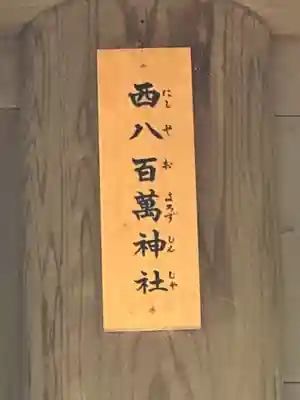 西八百萬神社
にしやおよろずしんしゃ